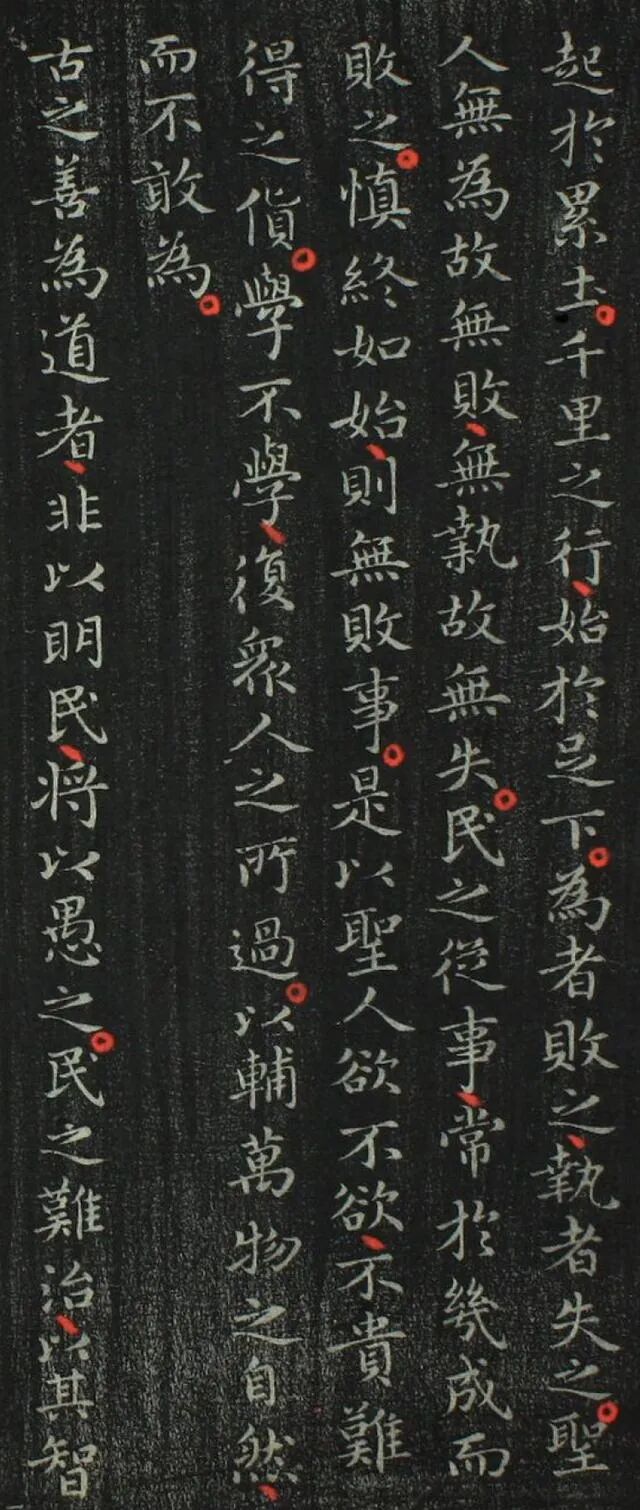 起於累土。千里之行、始於足下。為者敗之、執者失之。聖
人無為故無敗、無執故無失。民之從事、常於幾成而
敗之。慎終如始、則無敗事。是以聖人欲不欲、不貴難
得之貨。學不學、復眾人之所過。以輔萬物之自然、
而不敢為。
古之善為道者、非以明民、將以愚之。民之難治、以其智